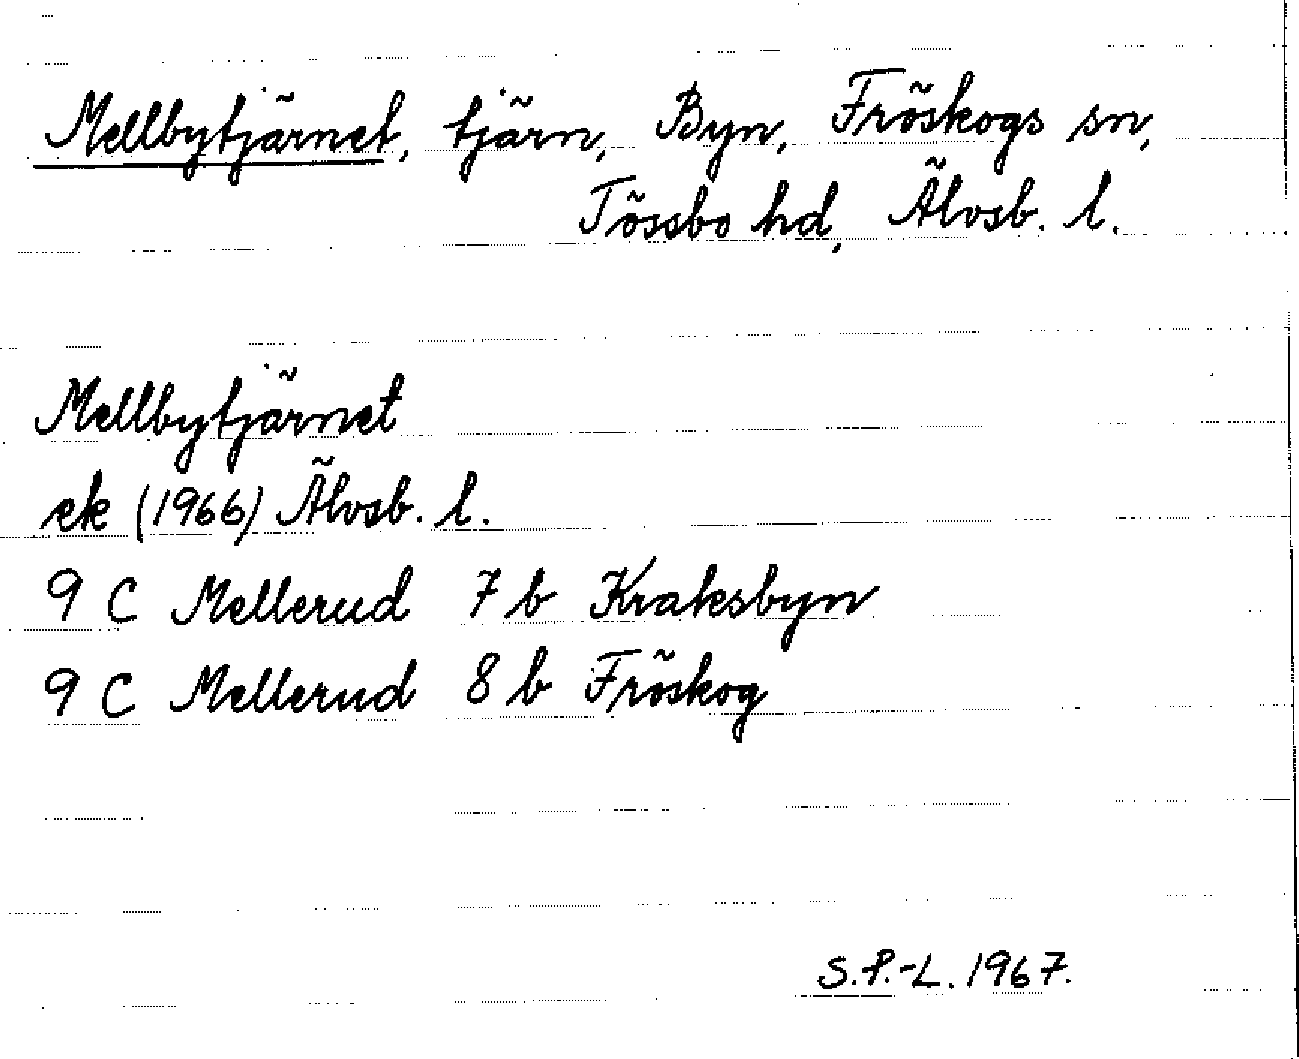 Mellbytjärnet, tjärn, Byn, Fröskogs sn,
Tössbo hd, Älvsb. l.
Mellbytjärnet
ek (1966) Älvsb. l.
9 C Mellerud 7 b Kraksbyn
9 C Mellerud 8 b Fröskog
S.P.-L. 1967.